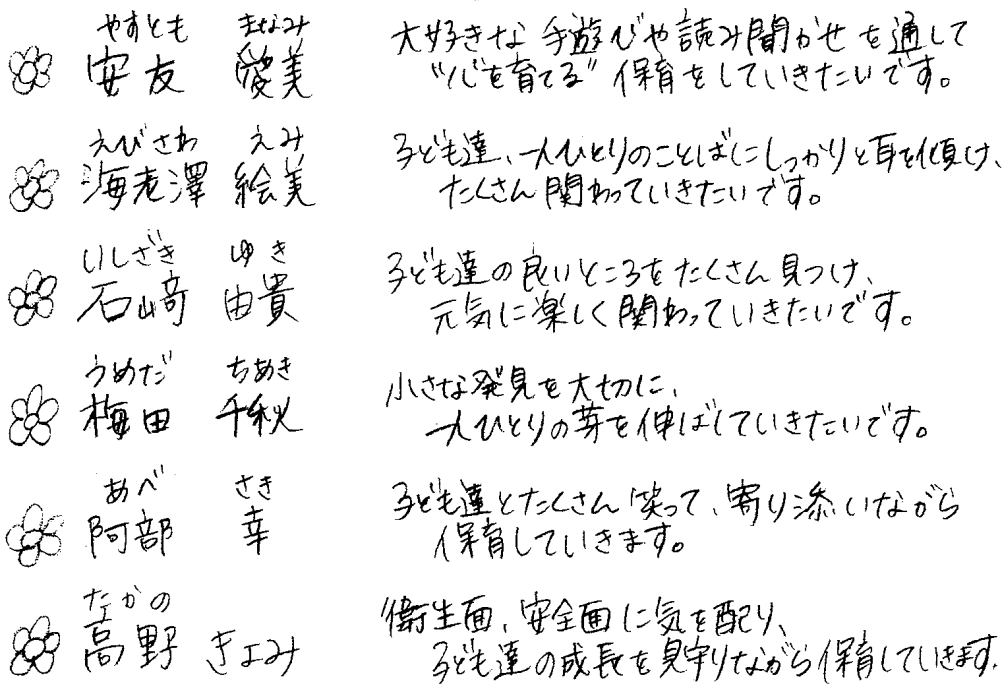 やすとも まなみ
安友 愛美
大好きな手遊びや読み聞かせを通して
"心を育てる"保育をしていきたいです。
えびさわ えみ
海老澤 絵美
子ども達、一人ひとりのことばにしっかりと耳を傾け、
たくさん関わっていきたいです。
いしざき ゆき
石﨑 由貴
子ども達の良いところをたくさん見つけ、
元気に楽しく関わっていきたいです。
うめだ ちあき
梅田 千秋
小さな発見を大切に、
一人ひとりの芽を伸ばしていきたいです。
あべ さき
阿部 幸
子ども達とたくさん笑って、寄り添いながら
保育していきます。
たかの
高野 きよみ
衛生面、安全面に気を配り、
子ども達の成長を見守りながら保育していきます。